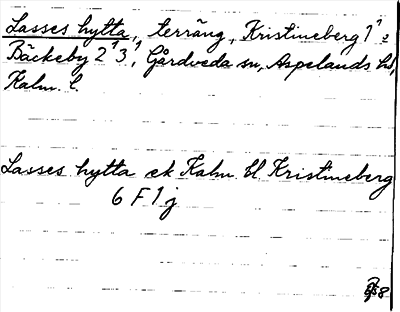 Lasses hytta, terräng, Kristineberg 1¹ =
Bäckeby 2¹ 3¹, Gårdveda sn, Aspelands hd,
Kalm. l.
Lasses hytta ek Kalm. bl Kristineberg
6 F 1 j